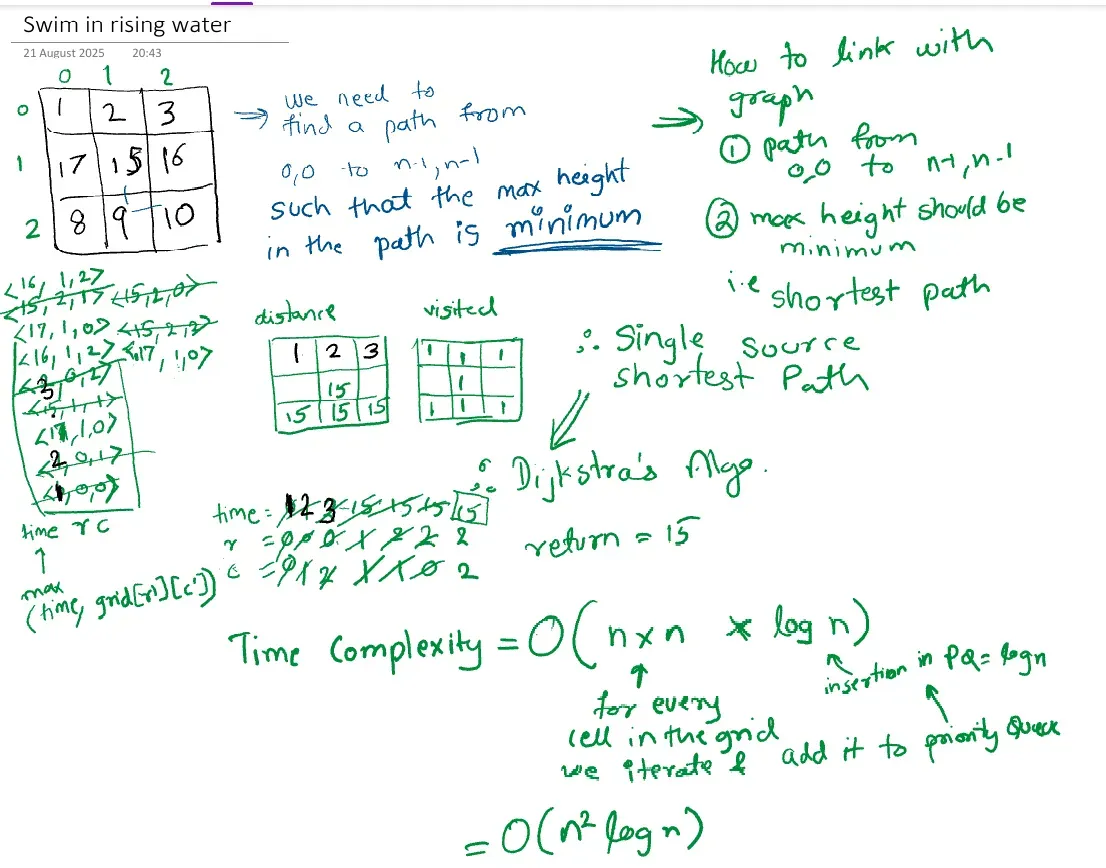 Swim in rising water
21 August 2025 20:43
0 1 2
0 1 2 3
1 17 15 16
2 8 9 10
→ we need to
find a path from
0,0 to n-1, n-1
such that the max height
in the path is minimum
→ How to link with
graph
① path from
0,0 to n-1, n-1
② max height should be
minimum
i.e shortest path
∴ Single source
shortest Path
∴ Dijkstra's Algo.
return = 15
<16, 1,2>
<15, 2,1> <15,2,0>
<17, 1,0> <15,2,2>
<16, 1,2> <17, 1,0>
<3, 0,2>
<15,1,1>
<17,1,0>
<2, 0,1>
<1,0,0>
time r c
↑
max
(time, grid[r'][c'])
distance
1 2 3
15
15 15 15
visited
1 1 1
1
1 1 1
time = 1 2 3 15 15 15 15
r = 0 0 0 1 2 2 2
c = 0 1 2 1 1 0 2
Time Complexity = O(n x n * log n)
for every
cell in the grid
we iterate & add it to priority Queue
insertion in PQ = logn
= O(n² log n)